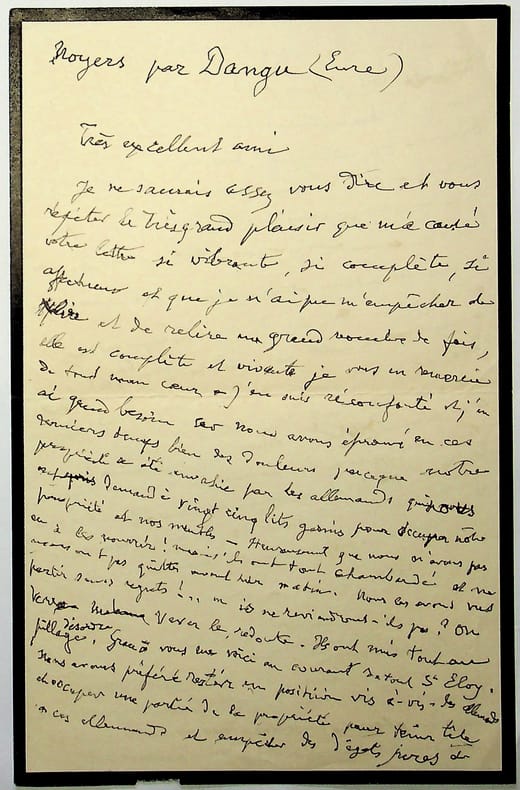 Noyers par Dangu (Eure)
Très excellent ami
Je ne saurais assez vous dire et vous
répéter le très grand plaisir que m'a causé
votre lettre si vibrante, si complète, si
affectueuse et que je n'ai pu m'empêcher de
lire et de relire un grand nombre de fois,
elle est complète et vivante je vous en remercie
de tout mon cœur et j'en suis réconforté et j'en
ai grand besoin car nous avons éprouvé en ces
derniers temps bien des douleurs puisque notre
propriété a été envahie par les allemands qui nous
ont demandé vingt cinq lits garnis pour occuper notre
propriété et nos meubles - Heureusement que nous n'avons pas
eu à les nourrir! mais ils ont tout chambardé et ne
nous ont pas quittés avant hier matin. Nous les avons vus
partir sans regrets!.. ne reviendront-ils pas? On
Verver le redoute. Ils ont mis tout au
pillage. Grace vous me voici au courant St Eloy.
Nous avons préféré rester en position vis-à-vis des allemands
occuper une partie de la propriété pour tenir tête
à ces allemands et empêcher des dégâts